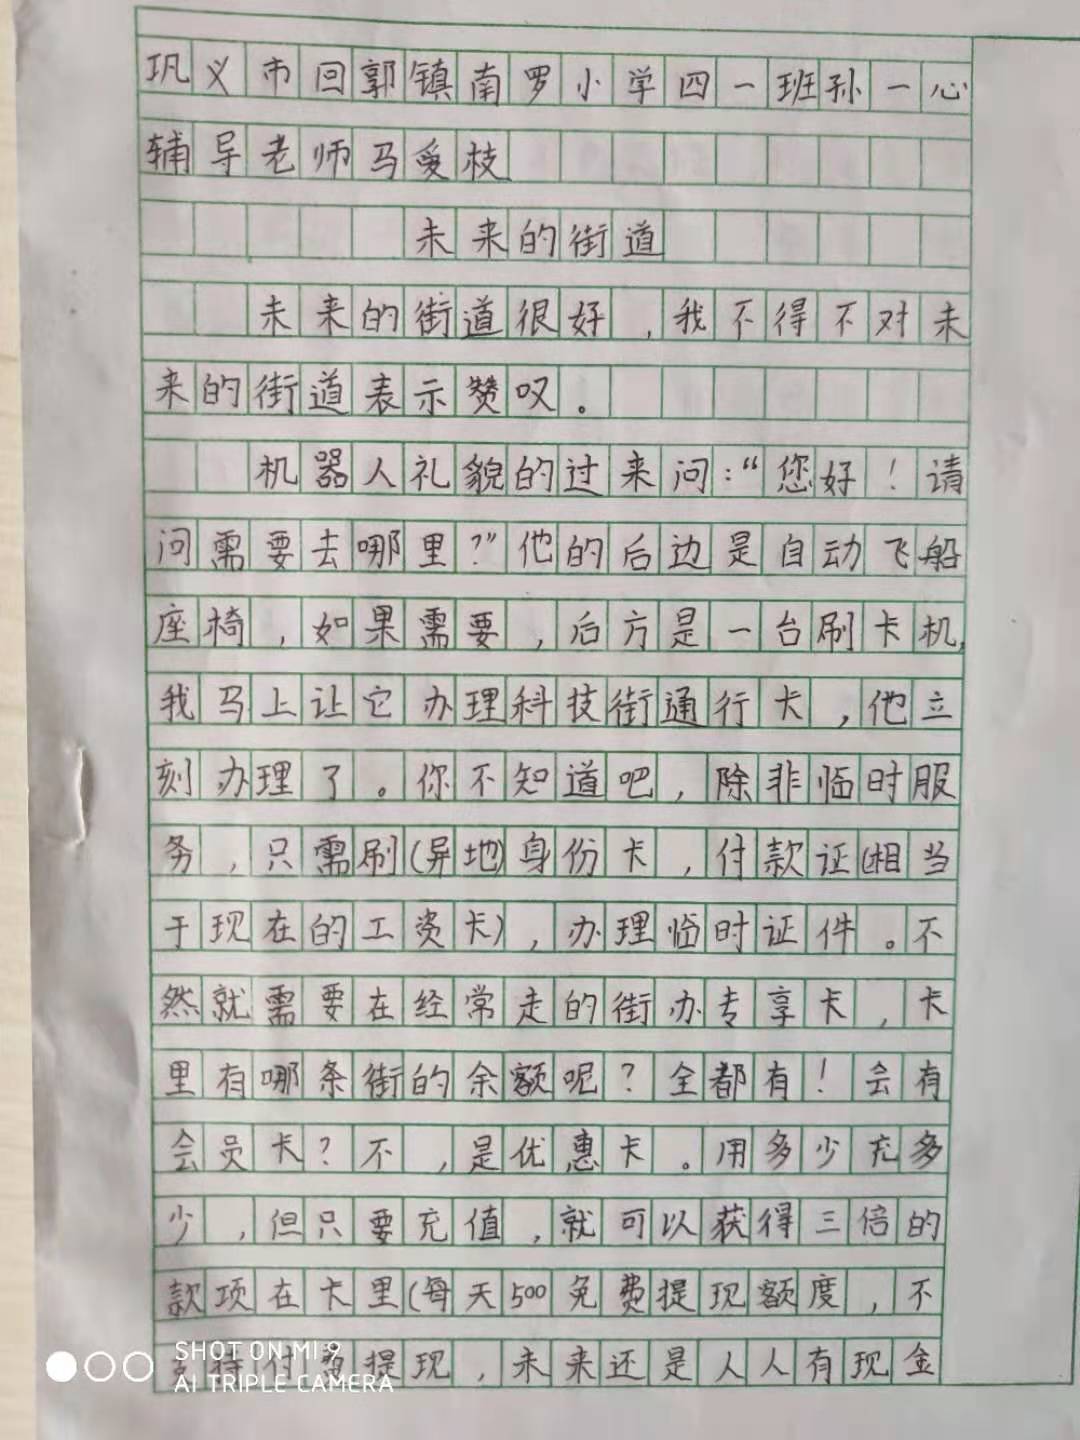 巩义市回郭镇南罗小学四一班孙一心
辅导老师马爱枝
未来的街道
未来的街道很好，我不得不对未
来的街道表示赞叹。
机器人礼貌的过来问：“您好！请
问需要去哪里？”他的后边是自动飞船
座椅，如果需要，后方是一台刷卡机，
我马上让它办理科技街通行卡，他立
刻办理了。你不知道吧，除非临时服
务，只需刷(异地)身份卡，付款证(相当
于现在的工资卡)，办理临时证件。不
然就需要在经常走的街办专享卡，卡
里有哪条街的余额呢？全都有！会有
会员卡？不，是优惠卡。用多少充多
少，但只要充值，就可以获得三倍的
款项在卡里(每天500免费提现额度，不
提现，未来还是人人有现金
SHOT ON MI 9
AI TRIPLE CAMERA